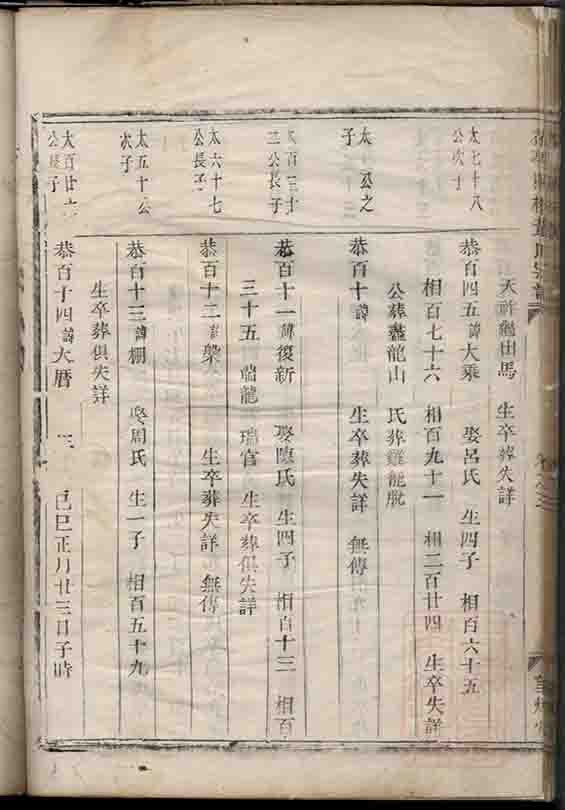 天 龜田馬 生卒葬失詳
太七十八
公次子
恭百四五諱大乘 娶呂氏 生四子 相百六十五
相百七十六 相百九十一 相二百廿四 生卒失詳
公葬盤龍山 氏葬雞龍
太 公之
子
恭百十諱 生卒葬失詳 無傳
百三十
三公長子
恭百十一諱復新 娶陳氏 生四子 相百十三 相百
三十五 端龍 瑞官 生卒葬俱失詳
太六十七
公長子
恭百十二諱榮 生卒葬失詳 無傳
太五十公
次子
恭百十三諱棚 娶周氏 生一子 相百五十九
生卒葬俱失詳
太百廿六
公長子
恭百十四諱大曆 己巳正月廿三日子時